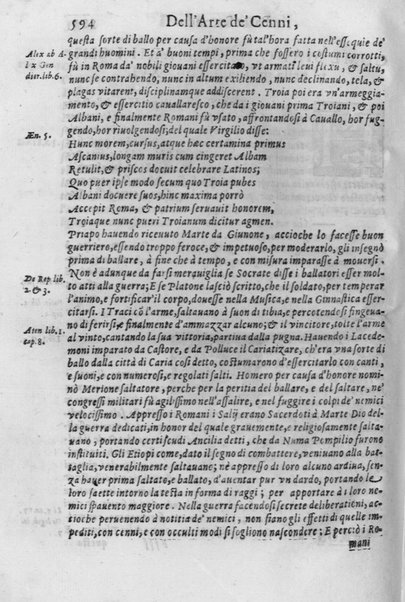 594 Dell'Arte de' Cenni,
questa sorte di ballo per causa d'honore fù tal'hora fatta nell'essequie de'
Alex ab A- grandi huomini. Et a' buoni tempi, prima che fossero i costumi corrotti,
l x Gen fù in Roma da' nobili giouani essercitato, vt armati leui flexu, & saltu,
dier.lib.6. nunc se contrahendo, nunc in altum exiliendo, nunc declinando, tela, &
plagas vitarent, disciplinamque addiscerent. Troia poi era vn'armeggia-
mento, & essercitio cauallaresco, che da i giouani prima Troiani, & poi
Albani, e finalmente Romani fù vsato, affrontandosi à Cauallo, hor fug-
gendo, hor riuolgendosi, del quale Virgilio disse:
Æn. 5. Hunc morem, cursus, atque hæc certamina primus
Ascanius, longam muris cum cingeret Albam
Retulit, & priscos docuit celebrare Latinos;
Quo puer ipse modo secum quo Troia pubes
Albani docuere suos, hinc maxima porrò
Accepit Roma, & patrium seruauit honorem,
Troiaque nunc pueri Troianum dicitur agmen.
Priapo hauendo riceuuto Marte da Giunone, accioche lo facesse buon
guerriero, essendo troppo feroce, & impetuoso, per moderarlo, gli insegnò
prima di ballare, à fine che à tempo, e con misura imparasse à mouersi.
De Rep lib. Non è adunque da farsi merauiglia se Socrate disse i ballatori esser mol-
2 & 3. to atti alla guerra; E se Platone lasciò scritto, che il soldato, per temperar
l'animo, e fortificar il corpo, douesse nella Musica, e nella Ginnastica esser-
citarsi. I Traci cõ l'arme, saltauano à suon di tibia, & saltando si fingeua-
Aten lib.1. no di ferirsi, e finalmente d'ammazzar alcuno; & il vincitore, tolte l'arme
cap.8. al vinto, cantando la sua vittoria, partiua dalla pugna. Hauendo i Lacede-
moni imparato da Castore, e da Polluce il Cariatizare, ch'era vna sorte di
ballo dalla città di Caria così detto, costumauano d'essercitarlo con canti,
e suoni, e con numerosi, e regolati salti. Homero per causa d'honore nomi-
nò Merione saltatore, perche per la peritia del ballare, e del saltare, ne'
congressi militari fù agilissimo nell'assalire, e nel fuggire i colpi de' nemici
velocissimo. Appresso i Romani i Salij erano Sacerdoti à Marte Dio del-
la guerra dedicati, in honor del quale grauemente, e religiosamente salta-
uano, portando certi scudi Ancilia detti, che da Numa Pompilio furono
instituiti. Gli Etiopi come, dato il segno di combattere, veniuano alla bat-
taglia, venerabilmente saltauano; nè appresso di loro alcuno ardiua, sen-
za hauer prima saltato, e ballato, d'auentar pur vn dardo, portando le
loro saette intorno la testa in forma di raggi; per apportare à i loro ne-
mici spauento maggiore. Nella guerra facendosi secrete deliberationi, ac-
tioche peruenendo à notitia de' nemici, non siano gli effetti di quelle im-
pediti, con cenni, e con occulti modi si sogliono nascondere; E perciò i Ro-
mani